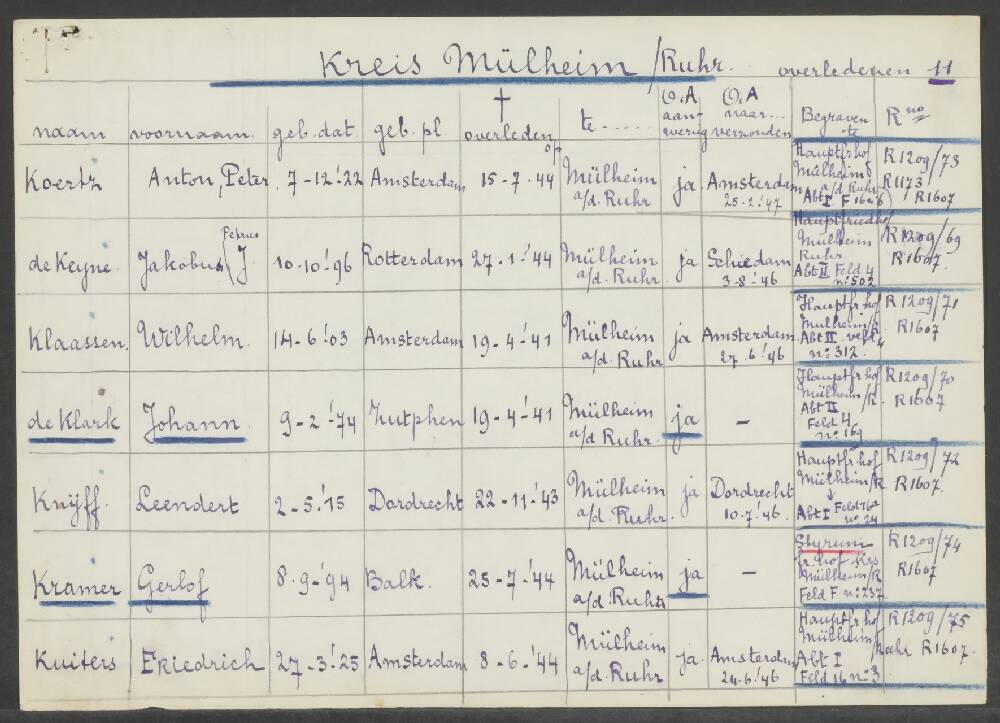 Kreis Mülheim/Ruhr. overledenen 11
naam voornaam. geb. dat. geb. pl. † overleden op te ----- O.A aanwezig O.A naar... verzonden Begraven te R no
Koertz Anton, Peter. 7-12-'22 Amsterdam 15-7-44 Mülheim a/d. Ruhr ja Amsterdam 25-2-'47 Hauptfrhof Mülheim a/d Ruhr Abt I F R1209/73 R1173 R1607
de Keyne. Jakobus Petrus J. 10-10-'96 Rotterdam 27-1-'44 Mülheim a/d. Ruhr. ja Schiedam 3-8-'46 Hauptfriedhof Mülheim Ruhr. Abt II Feld 4 no 502 R1209/69 R1607.
Klaassen. Wilhelm. 14-6-'03 Amsterdam 19-4-'41 Mülheim a/d. Ruhr. ja Amsterdam. 27-6-'46 Hauptfr. hof Mülheim/R. Abt II veld 4 no 312. R1209/71 R1607
de Klark Johann. 9-2-'74 Zutphen 19-4-'41 Mülheim a/d Ruhr. ja - Hauptfr hof Mülheim/R. Abt II Feld 4. no 169 R1209/70 R1607
Knÿff. Leendert 2-5-'15 Dordrecht 22-11-'43 Mülheim a/d. Ruhr. ja Dordrecht 10-7-'46. Hauptfr. hof Mülheim/R. Abt I Feld 16a no 24 R1209/72 R1607.
Kramer Gerlof 8-9-'94 Balk. 25-7-'44 Mülheim a/d. Ruhr ja - Styrum fr. hof Krs Mülheim/R Feld F no 237. R1209/74 R1607
Kuiters Friedrich 27-3-'25 Amsterdam 8-6-'44 Mülheim a/d. Ruhr ja. Amsterdam 24-6-'46 Hauptfr hof Mülheim/Ruhr Abt I Feld 16 no 3 R1209/75 R1607.